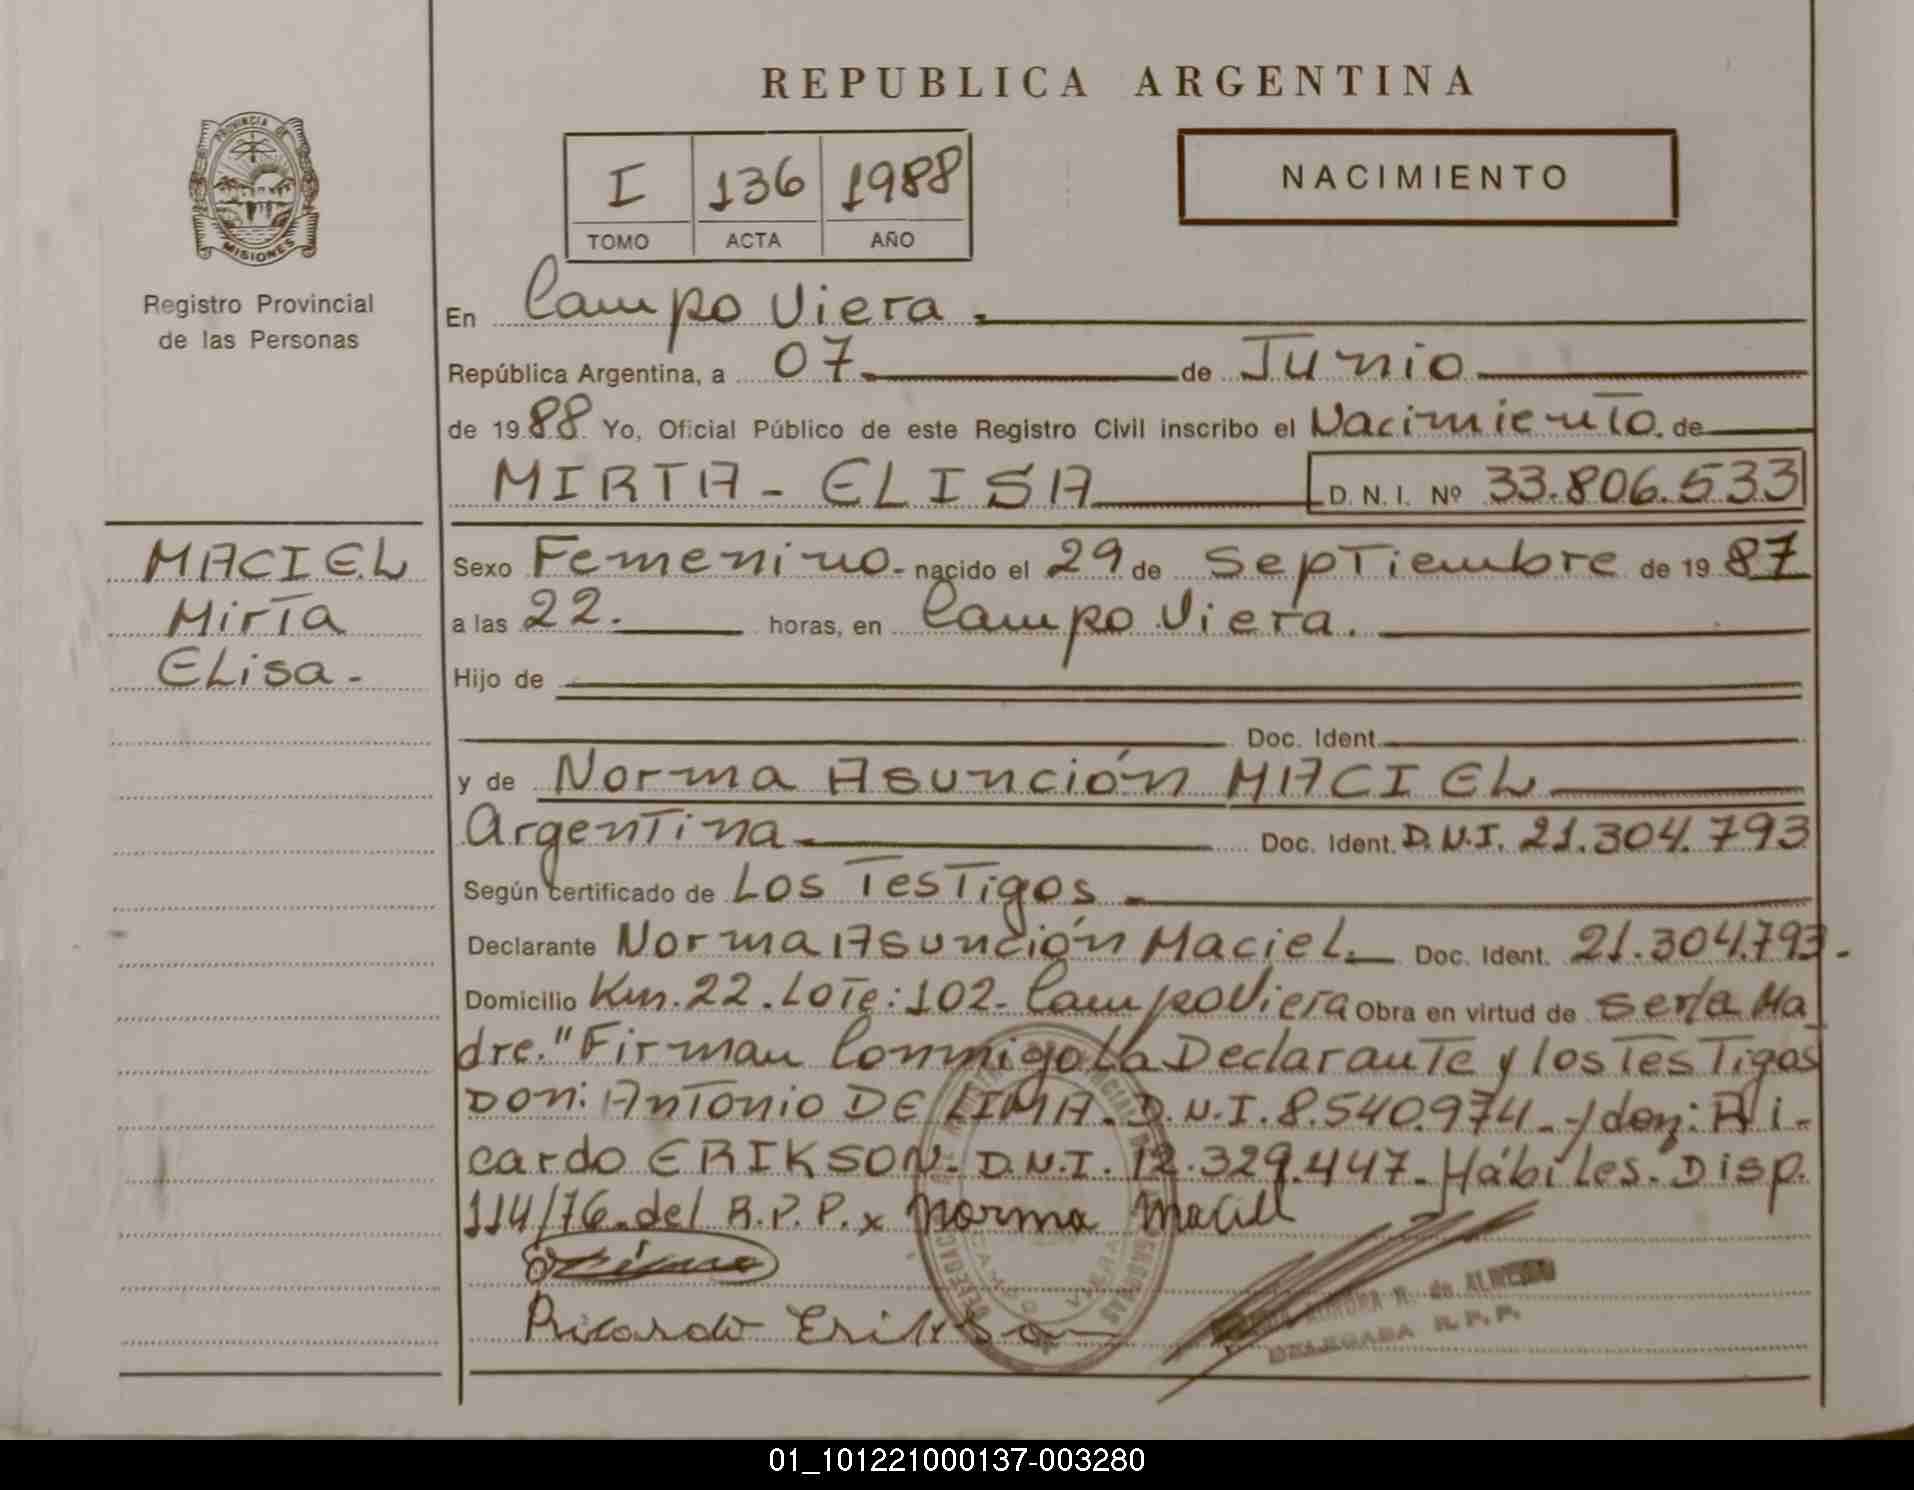 REPUBLICA ARGENTINA
PROVINCIA DE
MISIONES
Registro Provincial
de las Personas
I 136 1988
TOMO ACTA AÑO
NACIMIENTO
En Campo Viera.
República Argentina, a 07 de Junio
de 1988 Yo, Oficial Público de este Registro Civil inscribo el Nacimiento. de
MIRTA - ELISA D. N. I. Nº 33.806.533
MACIEL
Mirta
ELisa.-
Sexo Femenino.- nacido el 29 de Septiembre de 1987
a las 22. horas, en Campo Viera.
Hijo de
Doc. Ident.
y de Norma Asunción MACIEL
Argentina Doc. Ident. D.N.I. 21.304.793
Según certificado de Los Testigos
Declarante Norma Asunción Maciel. Doc. Ident. 21.304.793.-
Domicilio Km. 22. Lote: 102- Campo Viera Obra en virtud de ser la Ma
dre." Firman Conmigo La Declarante y los Testigos
Don: Antonio DE LIMA. D.N.I. 8.540.974.- y don: Ri-
cardo ERIKSON. D.N.I. 12.329.447. Hábiles. Disp.
114/76. del R.P.P. x Norma Maciel
Ricardo Erikson
DELEGADA R.P.P.
01_101221000137-003280